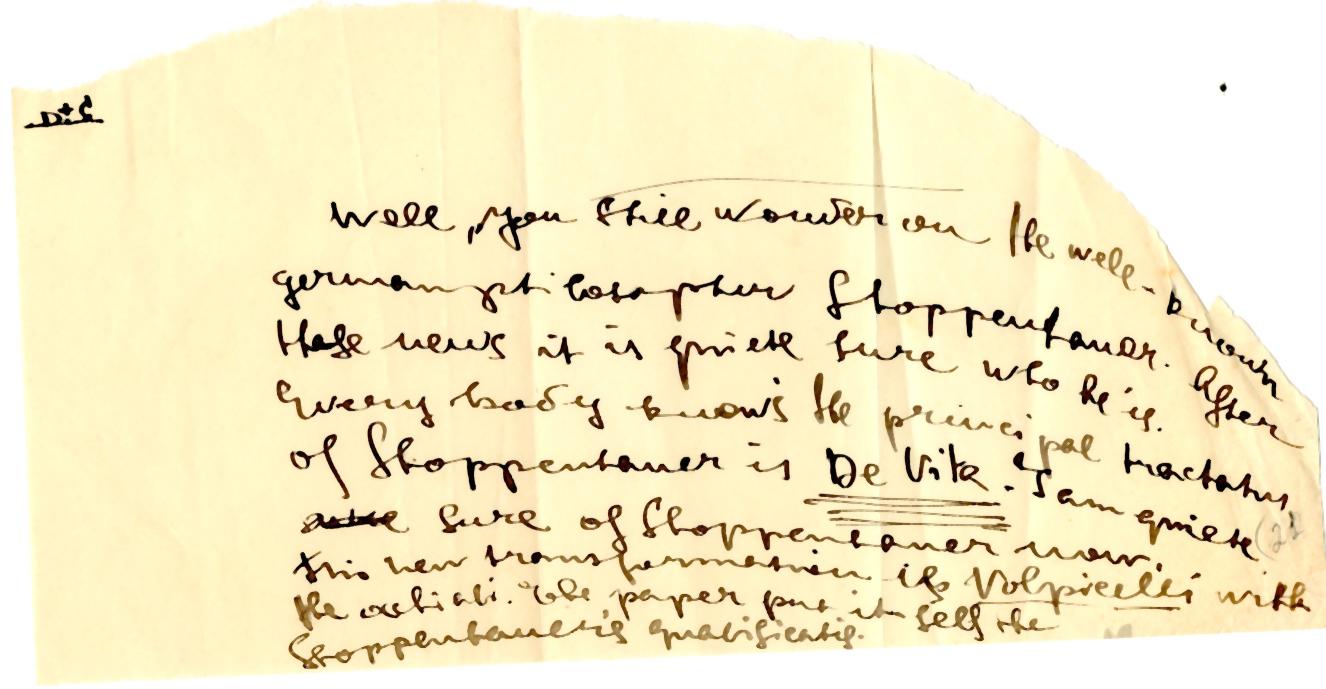 Well, you still wonder on the well-known
german philosopher Shoppenhauer. After
these news it is quiete sure who he is.
Every body knows the principal tractatus
of Shoppenhauer is De Vita. I am quiete
sure of Shoppenhauer now.
this new transformation is Volpicelli with
the paper put it self the
Shoppenhaueris